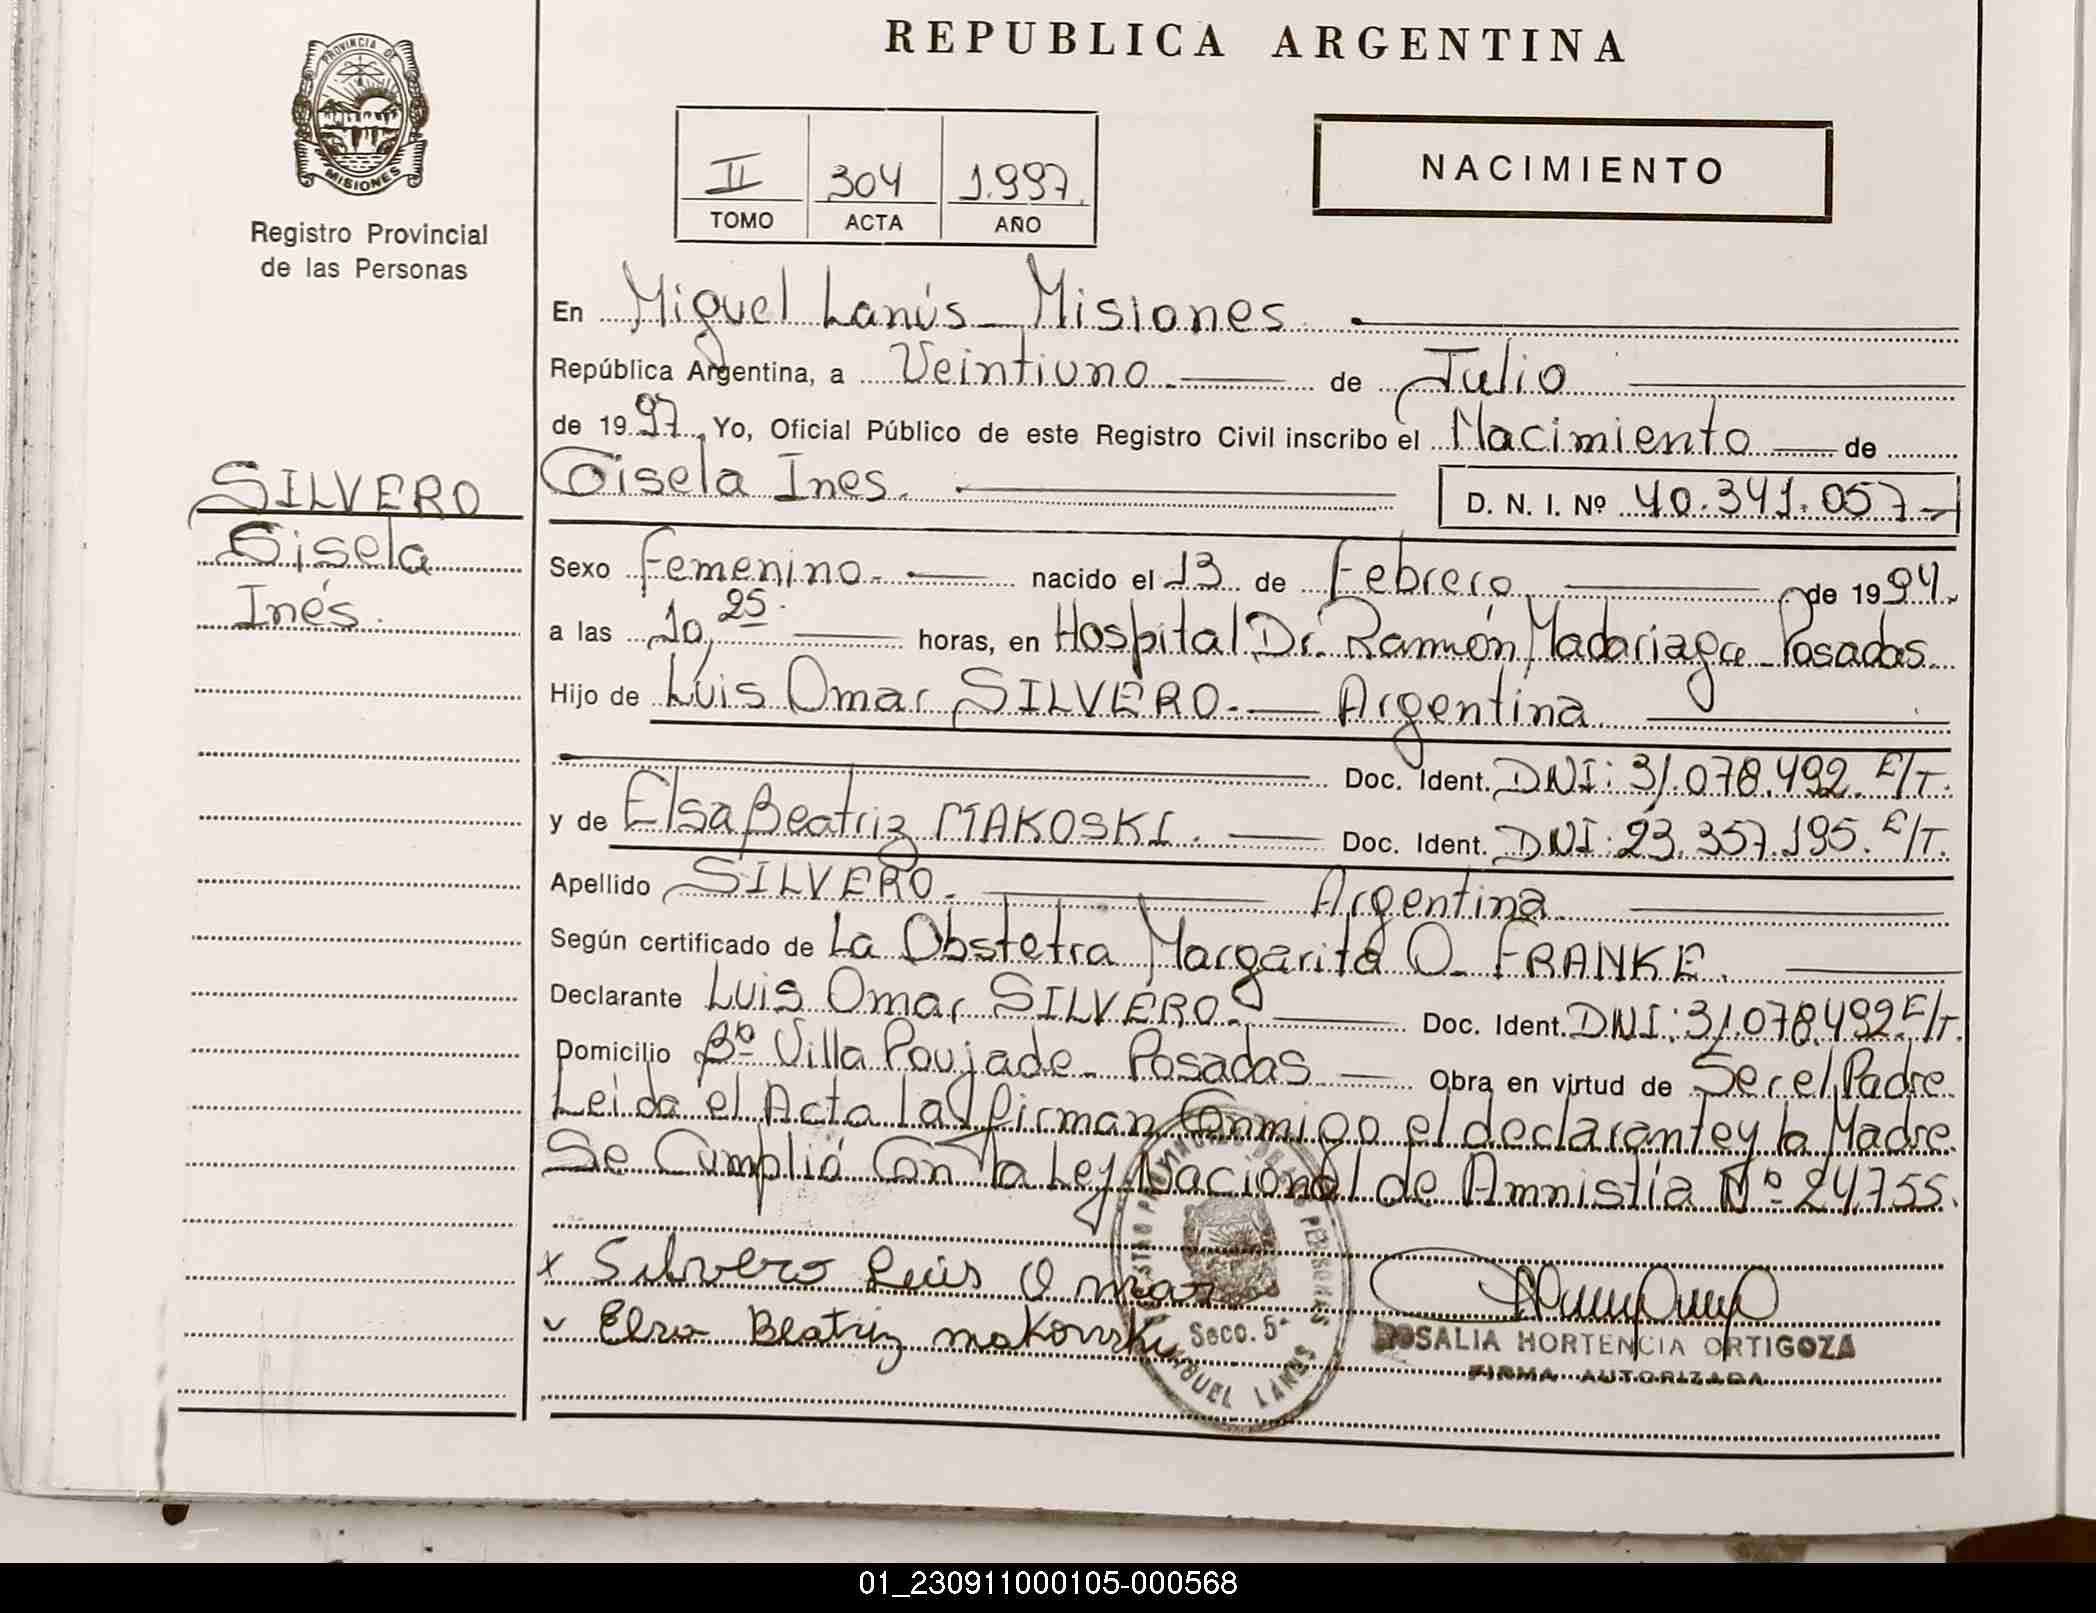 REPUBLICA ARGENTINA
PROVINCIA DE
MISIONES
Registro Provincial
de las Personas
II 304 1.997.
TOMO ACTA AÑO
NACIMIENTO
En Miguel Lanús - Misiones
República Argentina, a Veintiuno.- de Julio
de 1997. Yo, Oficial Público de este Registro Civil inscribo el Nacimiento de
SILVERO
Gisela
Inés.
Gisela Ines.
D. N. I. Nº 40.341.057-
Sexo Femenino.- nacido el 13 de Febrero de 1994.
a las 10,25. horas, en Hospital Dr. Ramón Madariaga - Posadas.
Hijo de Luis Omar SILVERO.- Argentina
Doc. Ident. DNI: 31.078.492. E/T.
y de Elsa Beatriz MAKOSKI. Doc. Ident. DNI: 23.357.195. E/T.
Apellido SILVERO.- Argentina.
Según certificado de La Obstetra Margarita O. FRANKE.
Declarante Luis Omar SILVERO.- Doc. Ident. DNI: 31.078.492 E/T.
Domicilio Bº Villa Poujade - Posadas Obra en virtud de Ser el Padre.
Leida el Acta la firman Conmigo el declarante y la Madre.
Se Cumplió Con la Ley Nacional de Amnistía Nº 24755.
x Silvero Luis Omar
Elsa Beatriz makowski
Secc. 5ª
MIGUEL LANUS
ROSALIA HORTENCIA ORTIGOZA
FIRMA AUTORIZADA
01_230911000105-000568